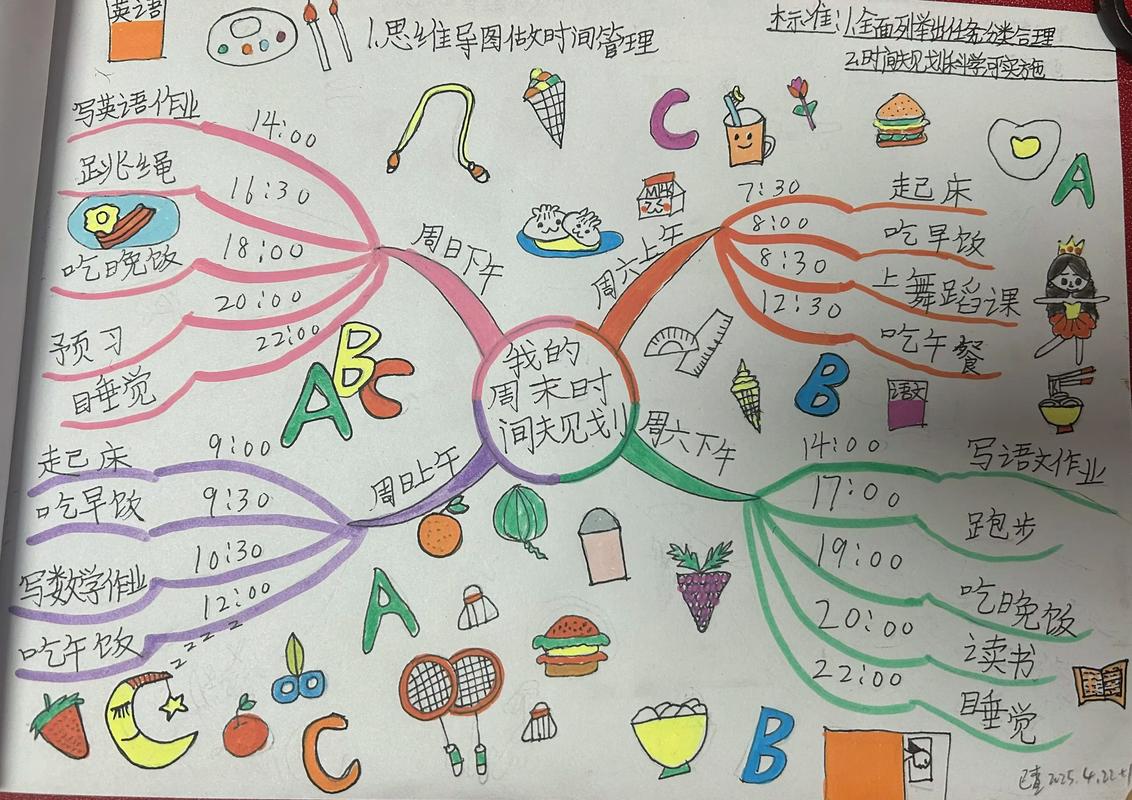 英语
1.思维导图做时间管理
标准:1.全面列举任务分类合理
2.时间规划科学可实施
我的
周末时
间规划
周六上午
7:30 起床
8:00 吃早饭
8:30 上舞蹈课
12:30 吃午餐
MILK
C
A
B
语文
周六下午
14:00 写语文作业
17:00 跑步
19:00 吃晚饭
20:00 读书
22:00 睡觉
B
周日上午
9:00 起床
9:30 吃早饭
10:30 写数学作业
12:00 吃午饭
z z z z z
A
C
周日下午
14:00 写英语作业
16:30 跳绳
18:00 吃晚饭
20:00 预习
22:00 睡觉
ABC
已查 2025.4.22